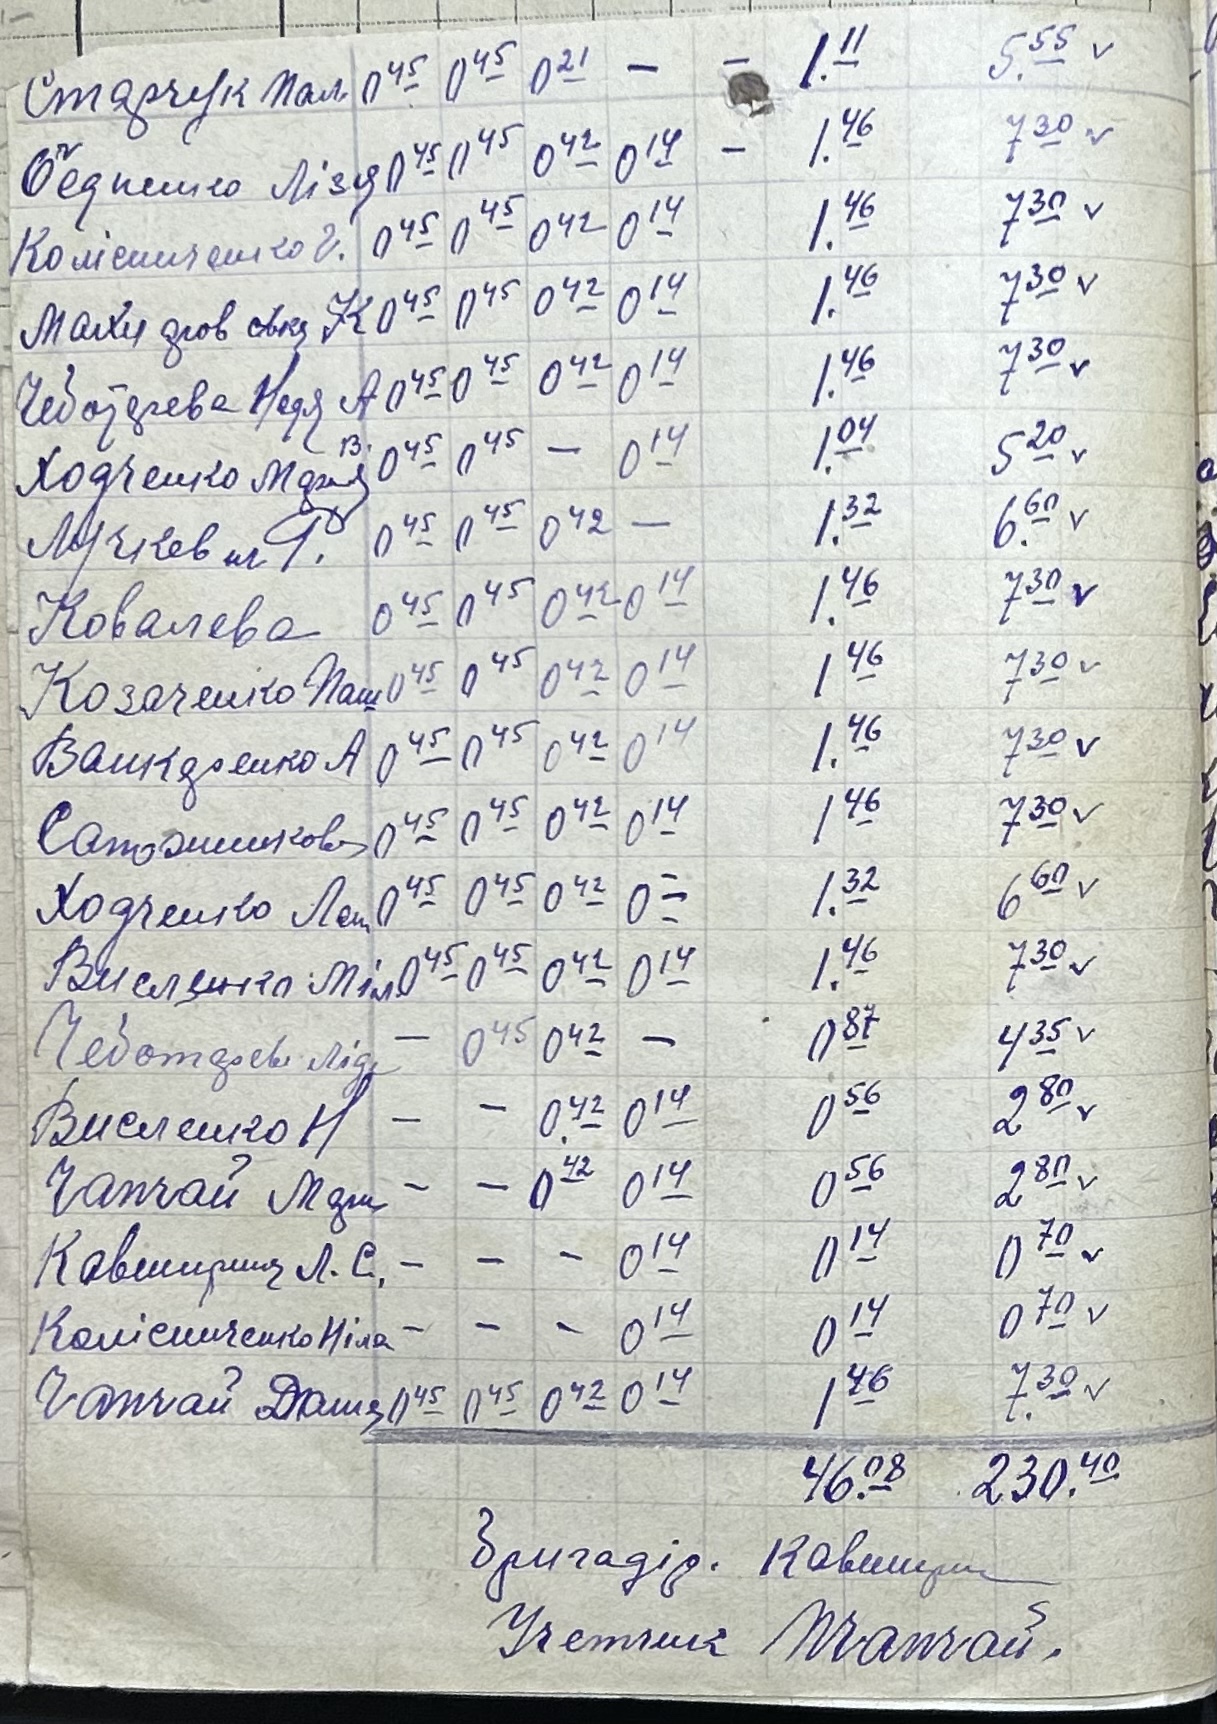 Старчук Пал. 0 45 0 45 0 21 – – 1.11 5.55 v
Бедненко Ліза 0 45 0 45 0 42 0 14 – 1.46 7 30 v
Колісниченко Г. 0 45 0 45 0 42 0 14 1.46 7 30 v
К 0 45 0 45 0 42 0 14 1.46 7 30 v
Чеботарева Надя А 0 45 0 45 0 42 0 14 1.46 7 30 v
Ходченко Марія В. 0 45 0 45 – 0 14 1.04 5 20 v
0 45 0 45 0 42 – 1.32 6.60 v
Ковалева 0 45 0 45 0 42 0 14 1.46 7 30 v
Козаченко Паш 0 45 0 45 0 42 0 14 1 46 7 30 v
Ванжаренко А 0 45 0 45 0 42 0 14 1.46 7 30 v
Сапожникова 0 45 0 45 0 42 0 14 1 46 7 30 v
Ходченко 0 45 0 45 0 42 0 = 1.32 6 60 v
Висленко Міл. 0 45 0 45 0 42 0 14 1.46 7 30 v
Чеботарева Ліда – 0 45 0 42 – 0 87 4 35 v
Висленко Н – – 0.42 0 14 0 56 2 80 v
Чапчай Мари – – 0 42 0 14 0 56 2 80 v
Кавширин Л. С. – – – 0 14 0 14 0 70 v
Колісниченко Ніла – – – 0 14 0 14 0 70 v
Чапчай Даша 0 45 0 45 0 42 0 14 1 46 7.30 v
46.08 230.40
Бригадір. Кавширин
Учетчик Чапчай.